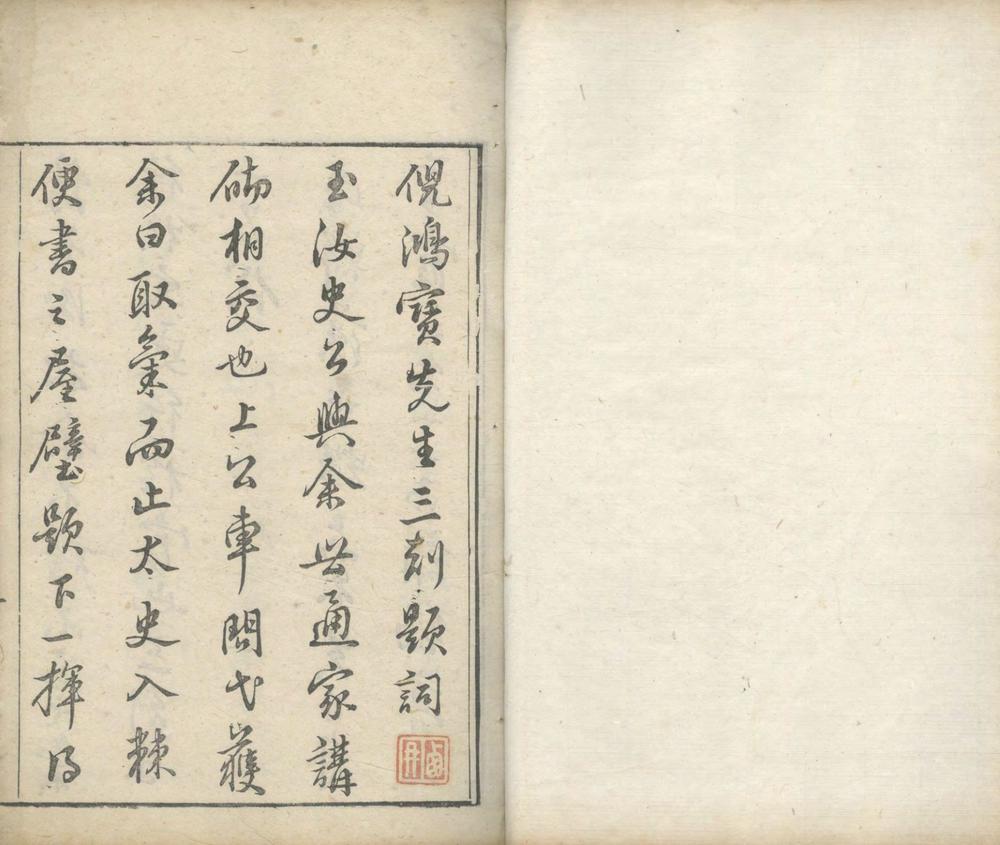 倪鴻寶先生三刻題詞
玉汝史公與余世通家講
相交也上公車問弋獲
余曰取氣而止太史入棘
便書之屋壁題下一揮